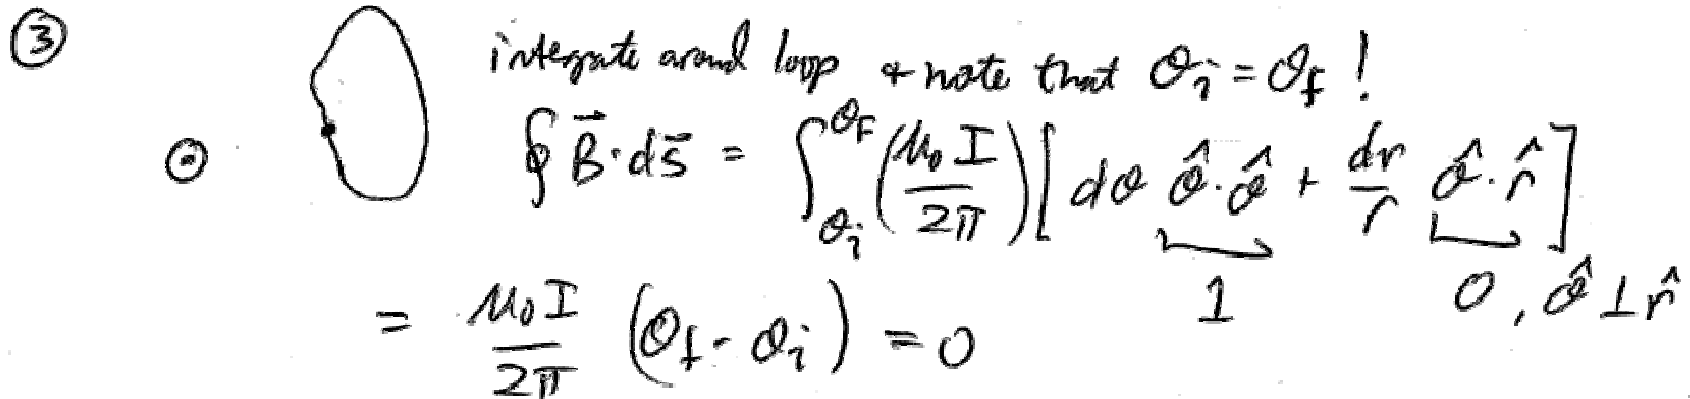 ③ integrate around loop + note that θᵢ = θf !
∮ B⃗·ds⃗ = ∫_{θᵢ}^{θF} (μ₀ I / 2π) [ dθ θ̂·θ̂ + dr/r θ̂·r̂ ]
1 0, θ̂ ⊥ r̂
= μ₀ I / 2π (θf - θᵢ) = 0